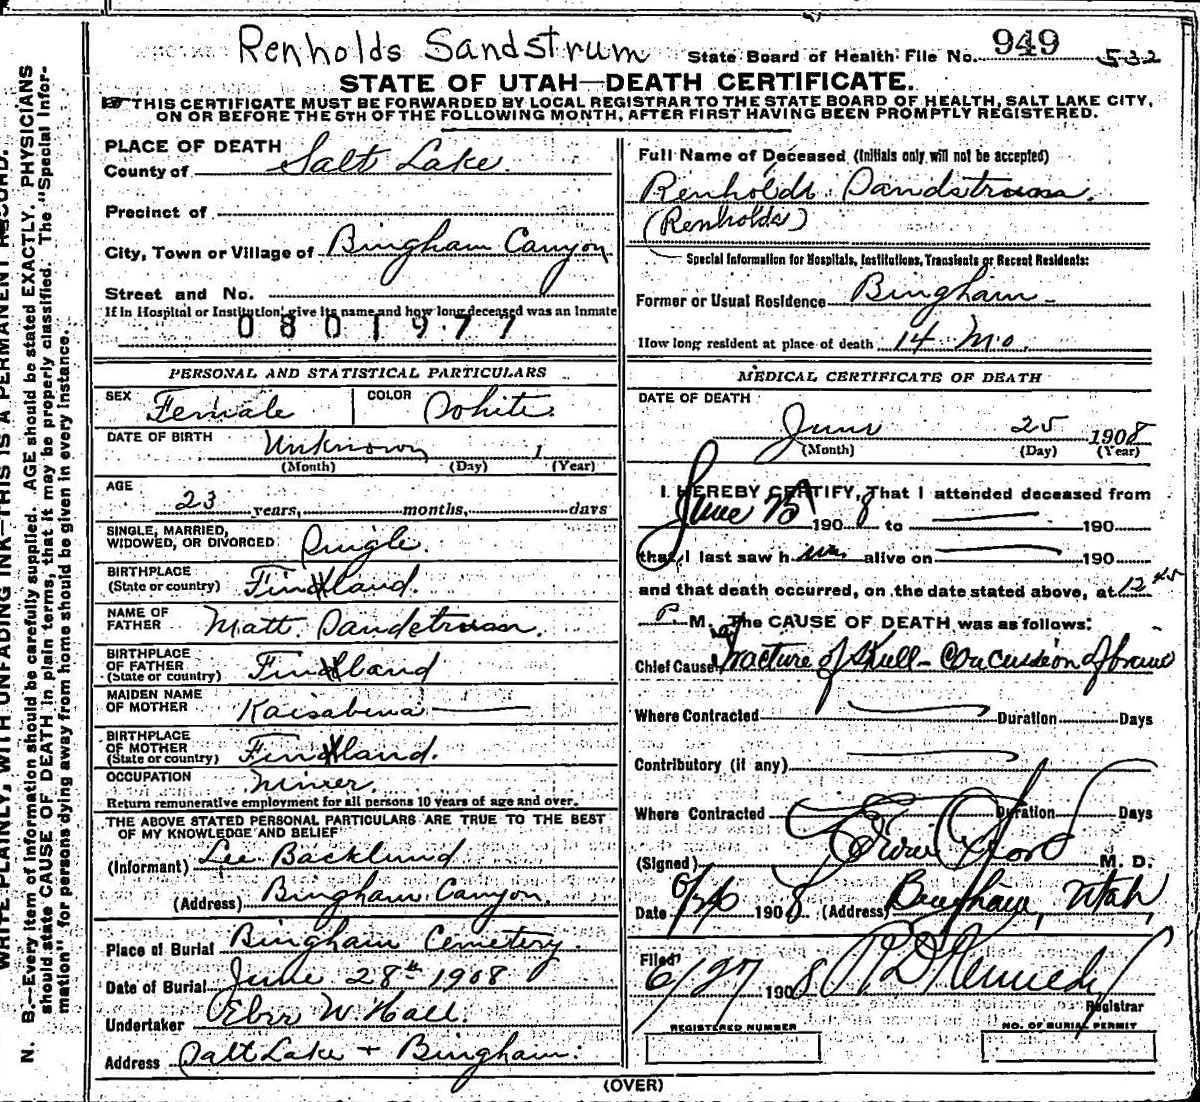 Renholds Sandstrum State Board of Health File No. 949 532
STATE OF UTAH—DEATH CERTIFICATE.
THIS CERTIFICATE MUST BE FORWARDED BY LOCAL REGISTRAR TO THE STATE BOARD OF HEALTH, SALT LAKE CITY,
ON OR BEFORE THE 5TH OF THE FOLLOWING MONTH, AFTER FIRST HAVING BEEN PROMPTLY REGISTERED.
PLACE OF DEATH
County of Salt Lake.
Precinct of
City, Town or Village of Bingham Canyon
Street and No.
If in Hospital or Institution give its name and how long deceased was an inmate
0801977
PERSONAL AND STATISTICAL PARTICULARS
SEX Female COLOR White.
DATE OF BIRTH Unknown 1
(Month) (Day) (Year)
AGE
23 years, months, days
SINGLE, MARRIED,
WIDOWED, OR DIVORCED Single.
BIRTHPLACE
(State or country) Finland.
NAME OF
FATHER Matt. Sandstrum.
BIRTHPLACE
OF FATHER
(State or country) Finland
MAIDEN NAME
OF MOTHER Kaisabina
BIRTHPLACE
OF MOTHER
(State or country) Finland.
OCCUPATION Miner.
Return remunerative employment for all persons 10 years of age and over.
THE ABOVE STATED PERSONAL PARTICULARS ARE TRUE TO THE BEST
OF MY KNOWLEDGE AND BELIEF
(Informant) Lee Backlund
(Address) Bingham Canyon.
Place of Burial Bingham Cemetery.
Date of Burial June 28th 1908
Undertaker Eber W. Hall.
Address Salt Lake + Bingham.
Full Name of Deceased (Initials only will not be accepted)
Renholds Sandstrum.
(Renholds)
Special Information for Hospitals, Institutions, Transients or Recent Residents:
Former or Usual Residence Bingham
How long resident at place of death 14 Mo.
MEDICAL CERTIFICATE OF DEATH
DATE OF DEATH
June 25 1908
(Month) (Day) (Year)
I HEREBY CERTIFY, That I attended deceased from
June 25 1908 to 190
that I last saw him alive on 190
and that death occurred, on the date stated above, at 12 45
P. M. The CAUSE OF DEATH was as follows:
Chief Cause Fracture of Skull - Concussion of brain
Where Contracted Duration Days
Contributory (if any)
Where Contracted Duration Days
(Signed) M. D.
Date 6/26 1908 (Address) Bingham, Utah
Filed
6/27 1908 Kennedy
Registrar
REGISTERED NUMBER NO. OF BURIAL PERMIT
(OVER)
WRITE PLAINLY, WITH UNFADING INK—THIS IS A PERMANENT RECORD.
N. B.—Every item of information should be carefully supplied. AGE should be stated EXACTLY. PHYSICIANS
should state CAUSE OF DEATH in plain terms, that it may be properly classified. The "Special Infor-
mation" for persons dying away from home should be given in every instance.